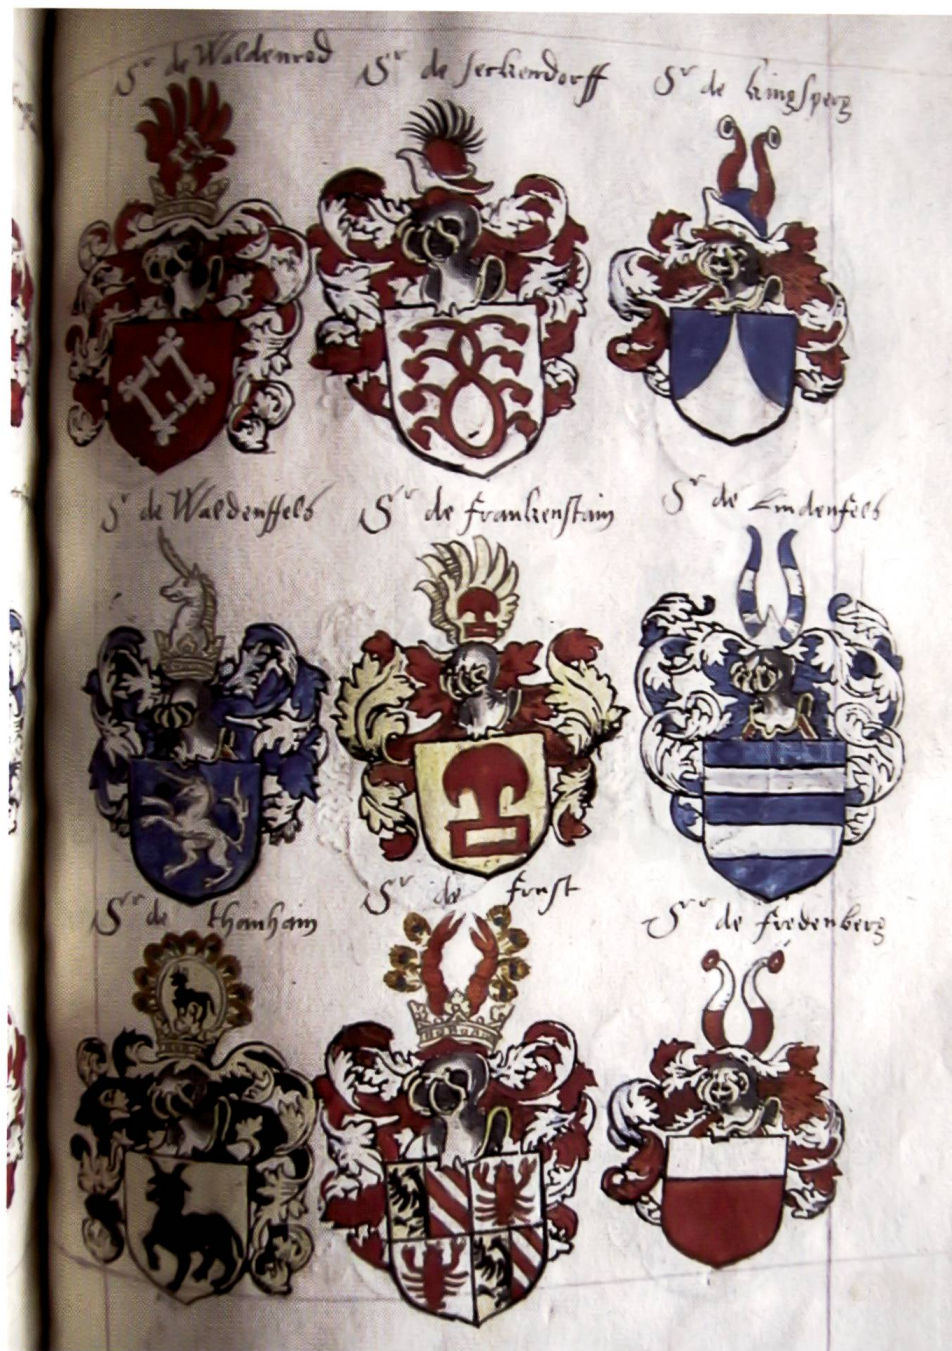 Sr de Waldenrod
Sr de Seckendorff
Sr de kingsperg
Sr de Waldenffels
Sr de Frankenstain
Sr de Lindenfels
Sr de thanhain
Sr de Furst
Sr de Fredenberg